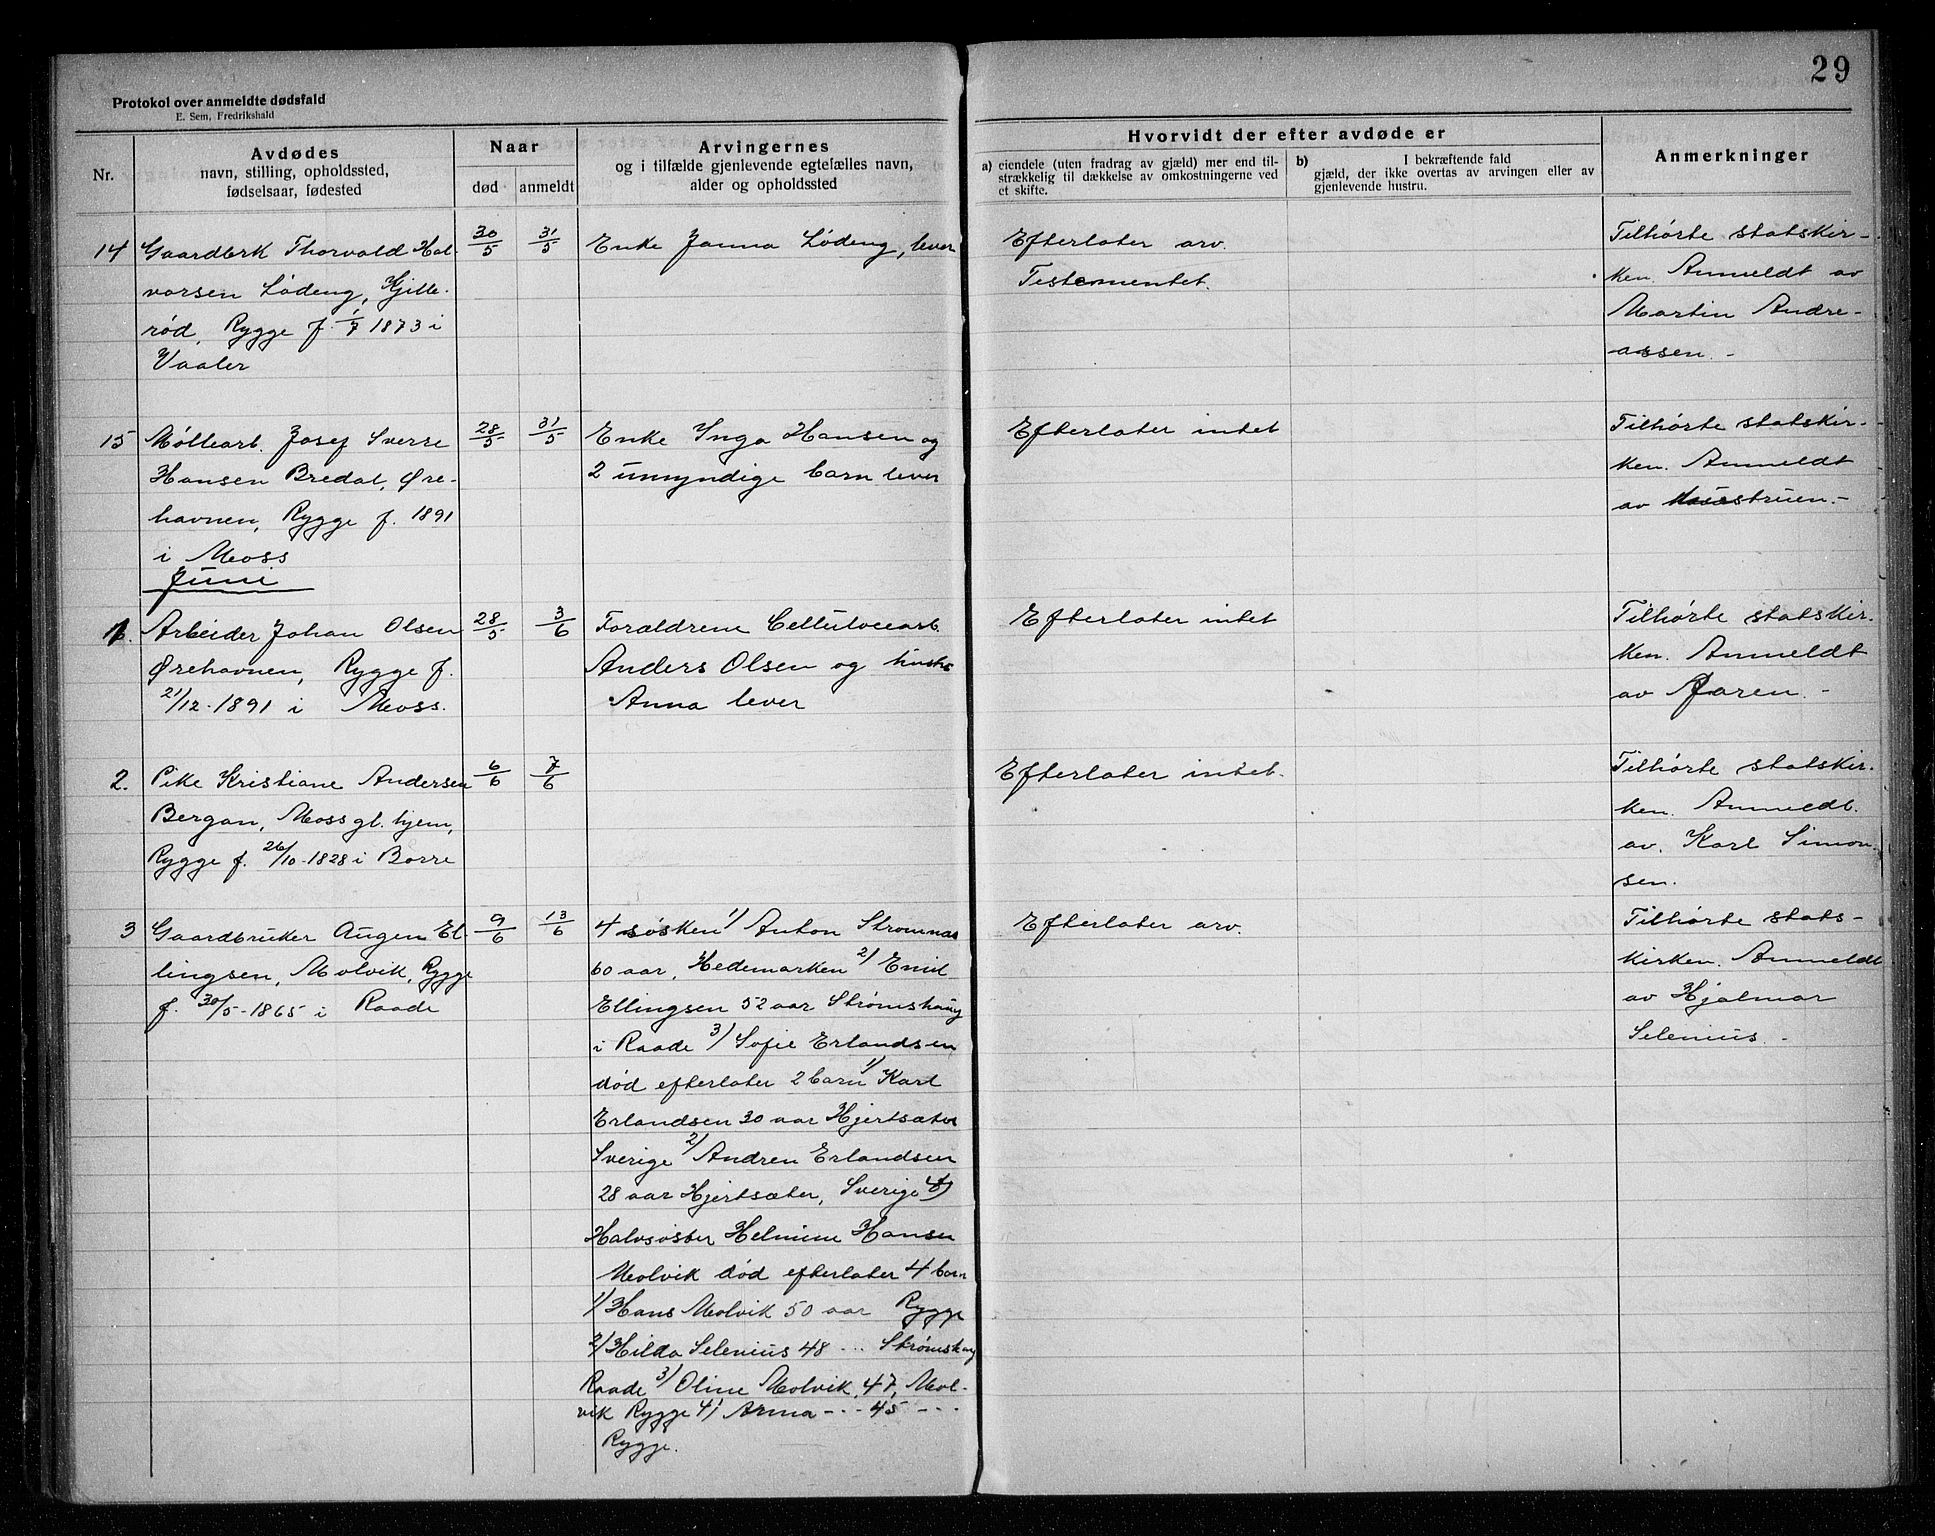 29
Protokol over anmeldte dødsfald
E. Sem, Fredrikshald
Nr.
Avdødes
navn, stilling, opholdssted,
fødselsaar, fødested
Naar
død
anmeldt
Arvingernes
og i tilfælde gjenlevende egtefælles navn,
alder og opholdssted
Hvorvidt der efter avdøde er
a) eiendele (uten fradrag av gjæld) mer end til-
strækkelig til dækkelse av omkostningerne ved
et skifte.
b) I bekræftende fald
gjæld, der ikke overtas av arvingen eller av
gjenlevende hustru.
Anmerkninger
14
Gaardbrk Thorvald Hal-
vorsen Lødeng, Kjille-
rød, Rygge f. 1/7 1873 i
Vaaler
30/5
31/5
Enke Janna Lødeng, lever
Efterlater arv.
Testementet.
Tilhørte statskir-
ken. Anmeldt av
Martin Andre-
assen. -
15
Møllearb. Josef Sverre
Hansen Bredal, Øre-
havnen, Rygge f. 1891
i Moss
28/5
31/5
Enke Inga Hansen og
2 umyndige barn lever
Efterlater intet
Tilhørte statskir-
ken. Anmeldt
av Haustruen. -
Juni
1.
Arbeider Johan Olsen
Ørehavnen, Rygge f.
21/12-1891 i Moss.
28/5
3/6
Forældrene Celluloearb.
Anders Olsen og hustr
Anna lever
Efterlater intet
Tilhørte statskir.
ken. Anmeldt
av Faren. -
2.
Pike Kristiane Andersen
Bergan, Moss gl. hjem,
Rygge f. 26/10-1828 i Borre
6/6
7/6
Efterlater intet.
Tilhørte statskir.
ken. Anmeldt.
av. Karl Simon-
sen.
3
Gaardbruker Augen El
lingsen, Molvik, Rygge
f. 30/5-1865 i Raade
9/6
13/6
4 søsken 1/ Anton Strømnæs
60 aar, Hedemarken 2/ Emil
Ellingsen 52 aar Strømshaug
i Raade 3/ Sofie Erlandsen
død efterlater 2 barn 1/ Karl
Erlandsen 30 aar Hjertsæter
Sverige 2/ Andren Erlandsen
28 aar Hjertsæter, Sverige 4)
Halvsøster Helmine Hansen
Molvik død efterlater 4 barn
1/ Hans Molvik 50 aar Rygge
2/ Hilda Selenius 48 -.. Strømshaug
Raade 3/ Oline Molvik, 47, Mol-
vik Rygge 4/ Anna - - - 45 - - -
Rygge.
Efterlater arv.
Tilhørte stats-
kirken. Anmeldt
av Hjalmar
Selenius. -